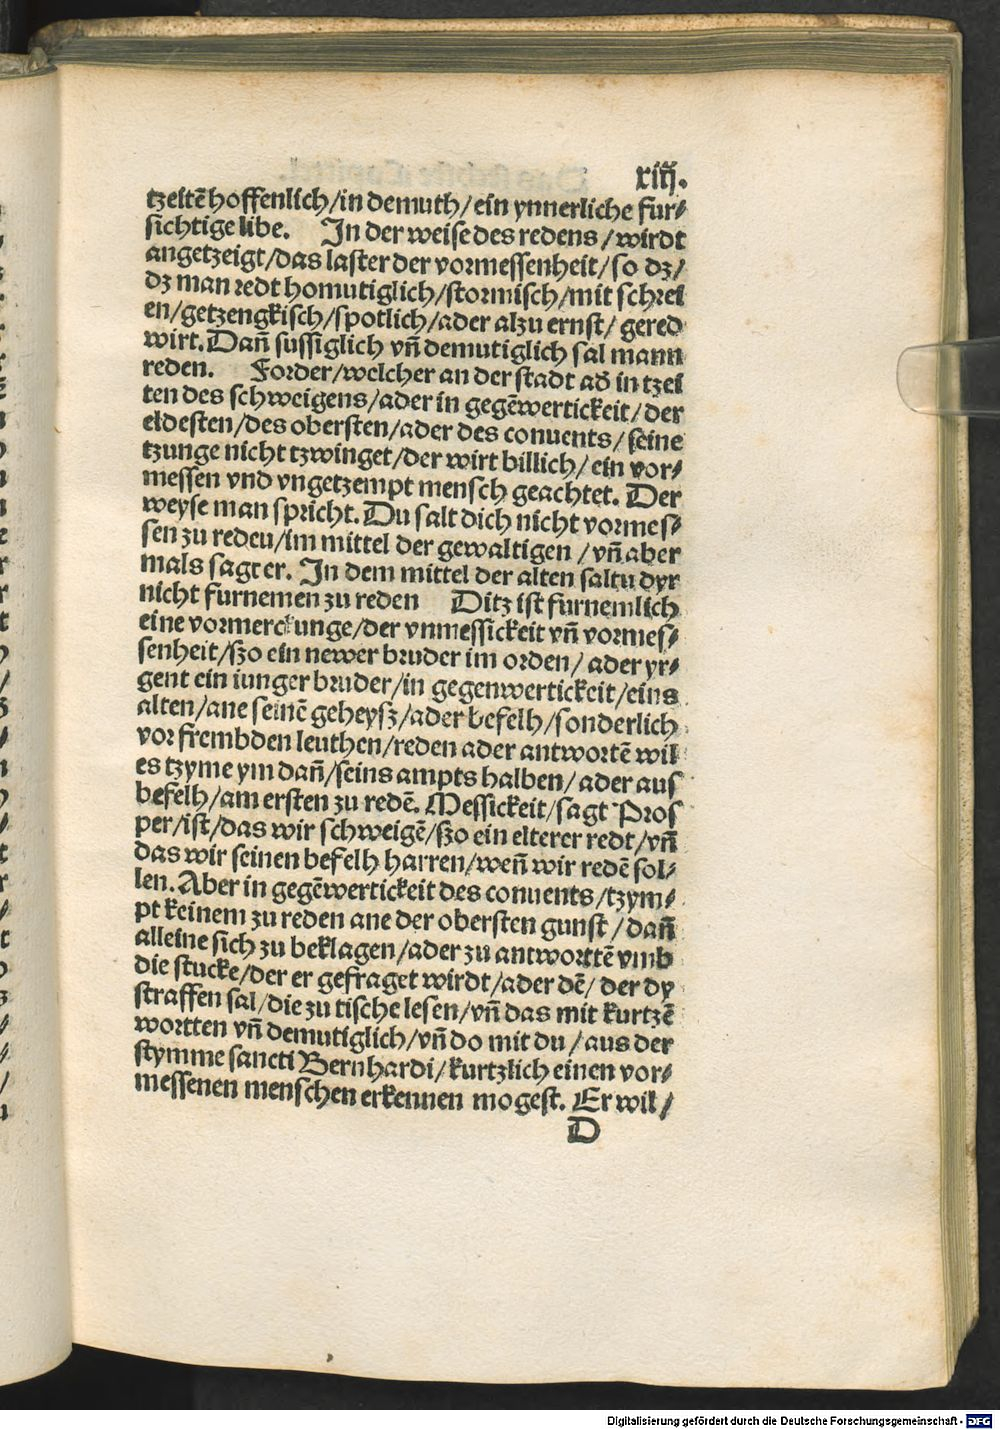 xiiij.
tzeitē hoffenlich/in demuth/ein ynnerliche fur⸗
sichtige libe. In der weise des redens/wirdt
angetzeigt/das laster der vormessenheit/so dz/
dz man redt homutiglich/stormisch/mit schrei
en/getzengkisch/spotlich/ader alzu ernst/ gered
wirt. Dañ sussiglich vñ demutiglich sal mann
reden. Forder/welcher an der stadt ad in tzei
ten des schweigens/ader in gegēwertickeit/der
eldesten/des obersten/ader des conuents/seine
tzunge nicht tzwinget/der wirt billich/ein vor⸗
messen vnd vngetzempt mensch geachtet. Der
weyse man spricht. Du salt dich nicht vormes⸗
sen zu redeu/im mittel der gewaltigen/vñ aber
mals sagt er. In dem mittel der alten saltu dyr
nicht furnemen zu reden Ditz ist furnemlich
eine vormerckunge/der vnmessickeit vñ vormes⸗
senheit/szo ein newer bruder im orden/ader yr⸗
gent ein iunger bruder/in gegenwertickeit/eins
alten/ane seinē geheysz/ader befelh/sonderlich
vor frembden leuthen/reden ader antwortē wil
es tzyme ym dañ/seins ampts halben/ader aus
befelh/am ersten zu redē. Messickeit/sagt Pros
per/ist/das wir schweigē/szo ein elterer redt/vñ
das wir seinen befelh harren/weñ wir redē sol⸗
len. Aber in gegēwertickeit des conuents/tzym⸗
pt keinem zu reden ane der obersten gunst/dañ
alleine sich zu beklagen/ader zu antworttē vmb
die stucke/der er gefraget wirdt/ader dē/ der dy
straffen sal/die zu tische lesen/vñ das mit kurtzē
wortten vñ demutiglich/vñ do mit du/aus der
stymme sancti Bernhardi/kurtzlich einen vor⸗
messenen menschen erkennen mogest. Er wil/
D
Digitalisierung gefördert durch die Deutsche Forschungsgemeinschaft - DFG